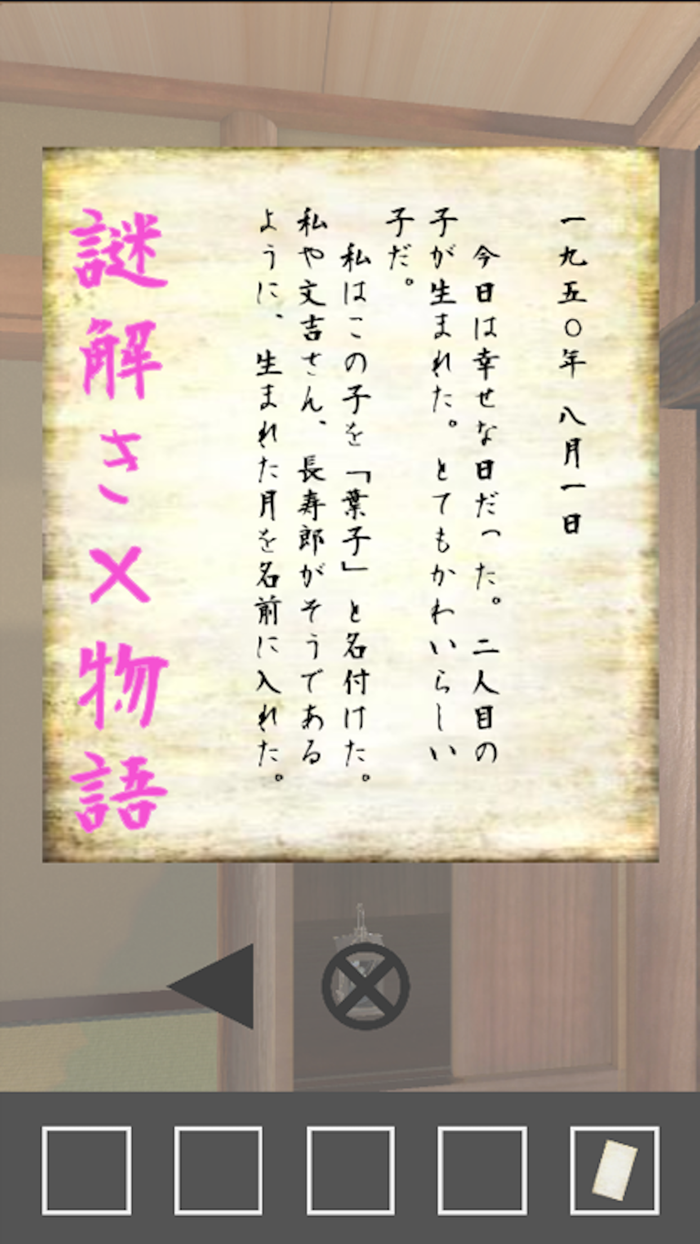 一九五〇年 八月一日
今日は幸せな日だった。二人目の
子が生まれた。とてもかわいらしい
子だ。
私はこの子を「葉子」と名付けた。
私や文吉さん、長寿郎がそうである
ように、生まれた月を名前に入れた。
謎解き×物語